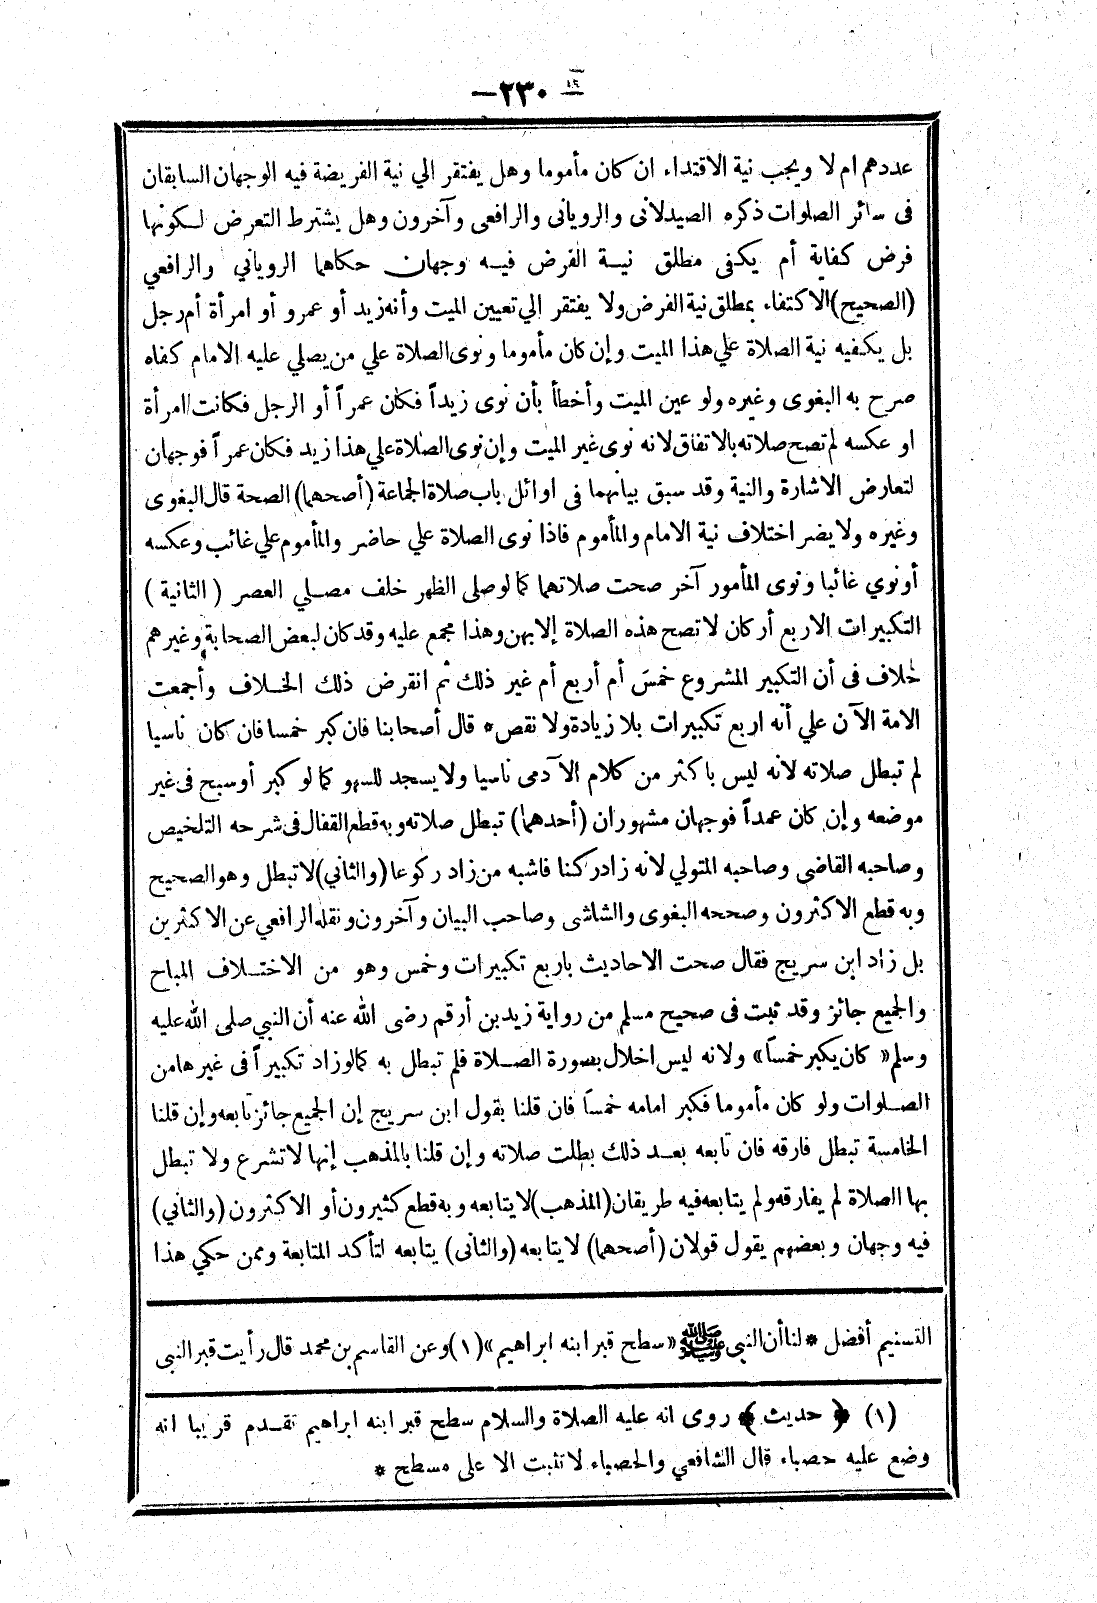 — ٢٣٠ —
عددهم ام لا ويجب نية الاقتداء ان كان مأموما وهل يفتقر الي نية الفريضة فيه الوجهان السابقان
في سائر الصلوات ذكره الصيدلانى والرويانى والرافعى وآخرون وهل يشترط التعرض لكونها
فرض كفاية أم يكفى مطلق نية الفرض فيه وجهان حكاهما الروياني والرافعي
(الصحيح) الاكتفاء بمطلق نية الفرض ولا يفتقر إلي تعيين الميت وأنه زيد أو عمرو أو امرأة أم رجل
بل يكفيه نية الصلاة علي هذا الميت وإن كان مأموما ونوى الصلاة علي من يصلي عليه الامام كفاه
صرح به البغوى وغيره ولو عين الميت وأخطأ بأن نوى زيداً فكان عمراً أو الرجل فكانت امرأة
او عكسه لم تصح صلاته بالاتفاق لانه نوى غير الميت وإن نوى الصلاة علي هذا زيد فكان عمراً فوجهان
لتعارض الاشارة والنية وقد سبق بيانهما فى اوائل باب صلاة الجماعة (أصحهما) الصحة قال البغوى
وغيره ولا يضر اختلاف نية الامام والمأموم فاذا نوى الصلاة علي حاضر والمأموم علي غائب وعكسه
أو نوي غائبا ونوى المأمور آخر صحت صلاتهما كما لو صلى الظهر خلف مصلي العصر (الثانية)
التكبيرات الاربع أركان لا تصح هذه الصلاة إلا بهن وهذا مجمع عليه وقد كان لبعض الصحابة وغيرهم
خلاف فى أن التكبير المشروع خمس أم أربع أم غير ذلك ثم انقرض ذلك الخلاف وأجمعت
الامة الآن علي أنه اربع تكبيرات بلا زيادة ولا نقص * قال أصحابنا فان كبر خمسا فان كان ناسيا
لم تبطل صلاته لانه ليس باكثر من كلام الآدمى ناسيا ولا يسجد للسهو كما لو كبر أو سبح فى غير
موضعه وإن كان عمداً فوجهان مشهوران (أحدهما) تبطل صلاته وبه قطع القفال فى شرحه التلخيص
وصاحبه القاضى وصاحبه المتولي لانه زاد ركنا فاشبه من زاد ركوعا (والثاني) لا تبطل وهو الصحيح
وبه قطع الاكثرون وصححه البغوى والشاشى وصاحب البيان وآخرون ونقله الرافعي عن الاكثرين
بل زاد ابن سريج فقال صحت الاحاديث باربع تكبيرات وخمس وهو من الاختلاف المباح
والجميع جائز وقد ثبت فى صحيح مسلم من رواية زيد بن أرقم رضى الله عنه أن النبي صلى الله عليه
وسلم « كان يكبر خمسا » ولانه ليس اخلال بصورة الصلاة فلم تبطل به كما لو زاد تكبيراً فى غيرها من
الصلوات ولو كان مأموما فكبر امامه خمسا فان قلنا بقول ابن سريج إن الجميع جائز تابعه وإن قلنا
الخامسة تبطل فارقه فان تابعه بعد ذلك بطلت صلاته وإن قلنا بالمذهب إنها لا تشرع ولا تبطل
بها الصلاة لم يفارقه ولم يتابعه فيه طريقان (المذهب) لا يتابعه وبه قطع كثيرون أو الاكثرون (والثاني)
فيه وجهان وبعضهم يقول قولان (أصحهما) لا يتابعه (والثانى) يتابعه لتأكد المتابعة وممن حكي هذا
التسنيم أفضل * لنا أن النبي ﷺ « سطح قبر ابنه ابراهيم » (١) وعن القاسم بن محمد قال رأيت قبر النبى
(١) ﴿ حديث ﴾ روى انه عليه الصلاة والسلام سطح قبر ابنه ابراهيم تقدم قريبا انه
وضع عليه حصباء قال الشافعي والحصباء لا تثبت الا على مسطح *